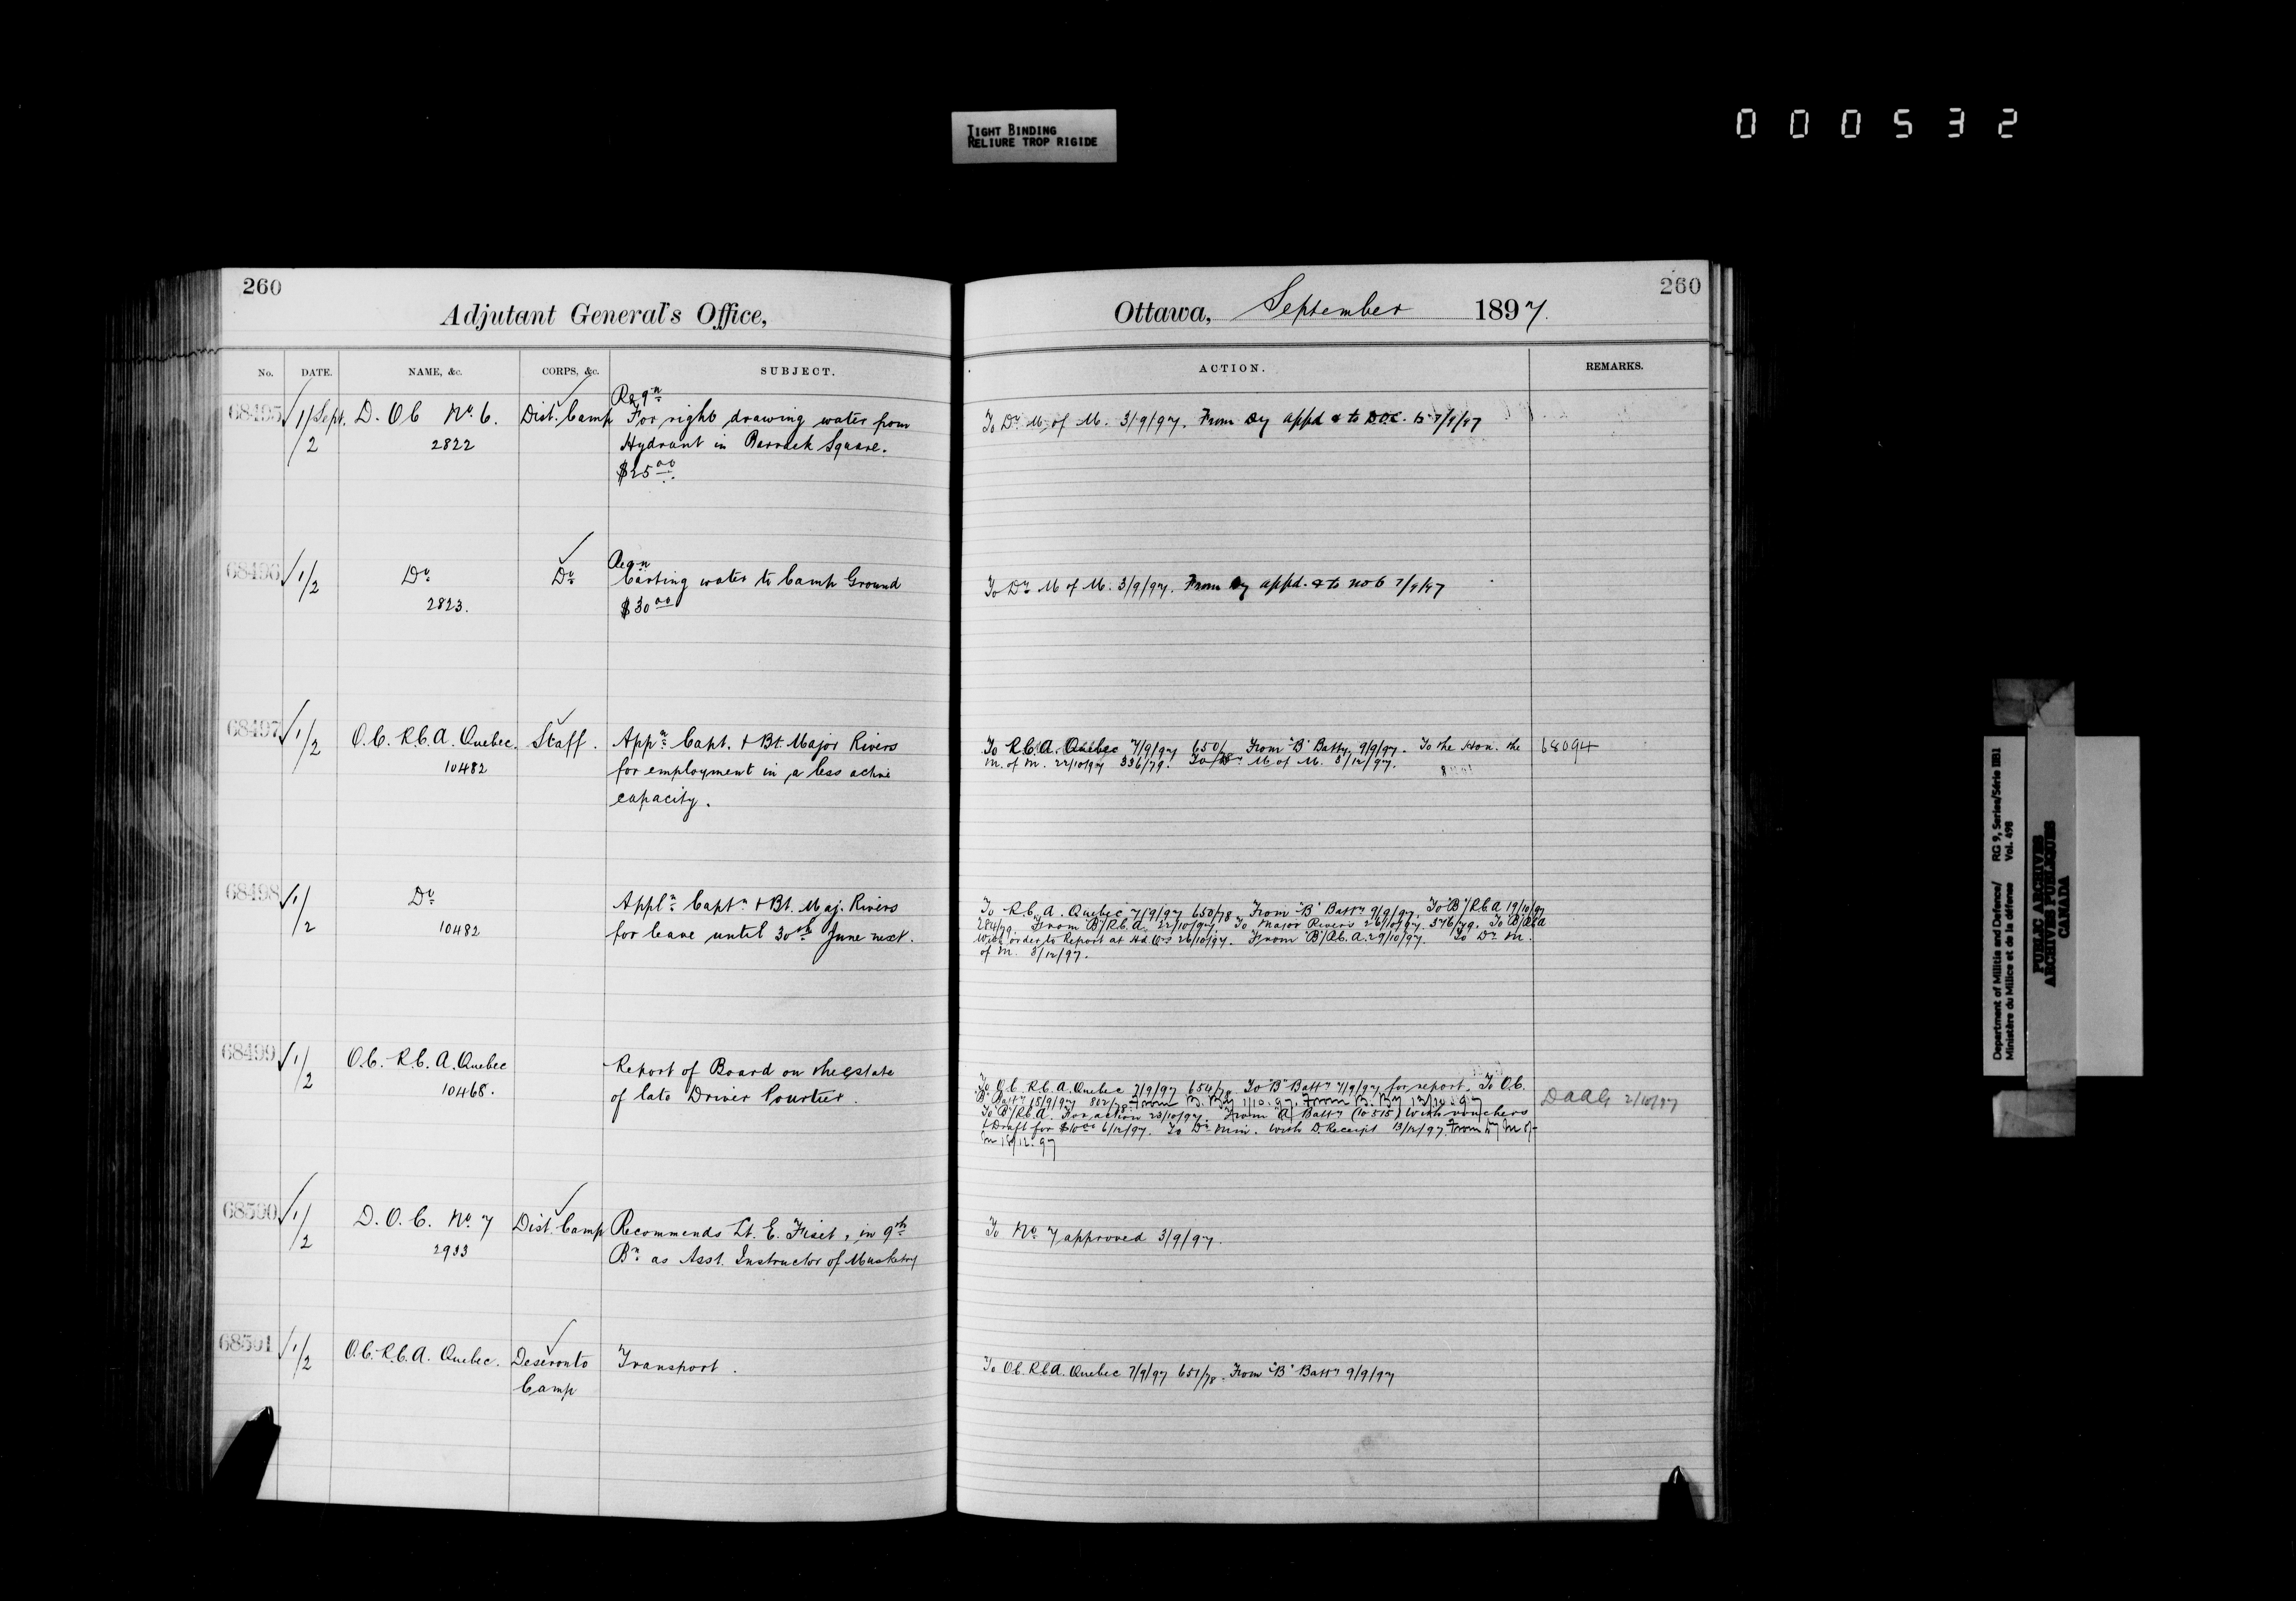 TIGHT BINDING
RELIURE TROP RIGIDE
000532
260
Adjutant General's Office,
No. DATE. NAME, &c. CORPS, &c. SUBJECT.
68495 1/Sept. D. O C No. 6. Dist. Camp Reqn
/2 2822 For right drawing water from
Hydrant in Barrack Square.
$25.00
68496 1/2 Do Do Reqn
2823. Carting water to Camp Ground
$30.00
68497 1/2 O.C. R.C.A. Quebec. Staff. Appn Capt. & Bt. Major Rivers
10482 for employment in a less active
capacity.
68498 1/2 Do Appln Captn & Bt. Maj. Rivers
10482 for leave until 30th June next.
68499 1/2 O.C. R.C.A. Quebec Report of Board on the estate
10468. of late Driver
68500 1/2 D. O. C. No 7 Dist. Camp Recommends Lt. E. Fiset, in 9th
2933 Bn as Asst. Instructor of Musketry
68501 1/2 O.C. R.C.A. Quebec. Deseronto Transport.
Camp
260
Ottawa, September 1897.
ACTION. REMARKS.
To Dy M. of M. 3/9/97. From Dy appd & to D.O.C. 7/9/97
To Dy M of M. 3/9/97. From Dy appd. & to No 6 7/9/97
To R.C.A. Quebec 7/9/97 650/ From "B" Batty 9/9/97. To the Hon. the 68094
M. of M. 22/10/97 336/79. To Dy M of M. 3/12/97.
To R.C.A. Quebec 7/9/97 650/78 From "B" Batty 9/9/97. To "B"/R.C.A 19/10/97
284/79. From "B"/R.C.A. 22/10/97. To Major Rivers 26/10/97. 376/79. To "B"/RCA
With order to Report at Hd Qrs 26/10/97. From "B"/R.C.A. 29/10/97. To Dy M.
of M. 3/12/97.
To O.C. R.C.A. Quebec 7/9/97 654/78 To "B" Batty 7/9/97 for report. To O.C.
"B" Batty 15/9/97 802/78. From B. By 1/10.97. From B. By DAAG 2/10/97
To "B"/R.C.A. For action 23/10/97 From "A" Batty (10515) With vouchers
& Draft for 6/12/97. To Dy Min. with D. Receipt 13/12/97. From Dy M of
M 18/12.97
To No 7 approved 3/9/97.
To O.C. R.C.A. Quebec 7/9/97 651/78. From "B" Batty 9/9/97
Department of Militia and Defence/ RG 9, Series/Série IIB1
Ministère du Milice et de la défense Vol. 498
PUBLIC ARCHIVES
ARCHIVES PUBLIQUES
CANADA